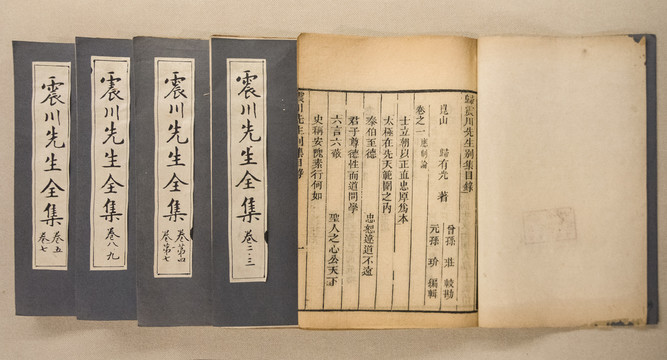 歸震川先生別集目錄
崑山　歸有光　著
曾孫　莊　較勘
元孫　玠　編輯
卷之一　應制論
士立朝以正直忠厚爲本
太極在先天範圍之內
泰伯至德　忠恕違道不遠
君子尊德性而道問學
六言六蔽　聖人之心公天下
史稱安隗素行何如
震川先生全集 卷二·三
震川先生全集 卷第四
卷第七
震川先生全集 卷八·九
震川先生全集 卷五
卷七